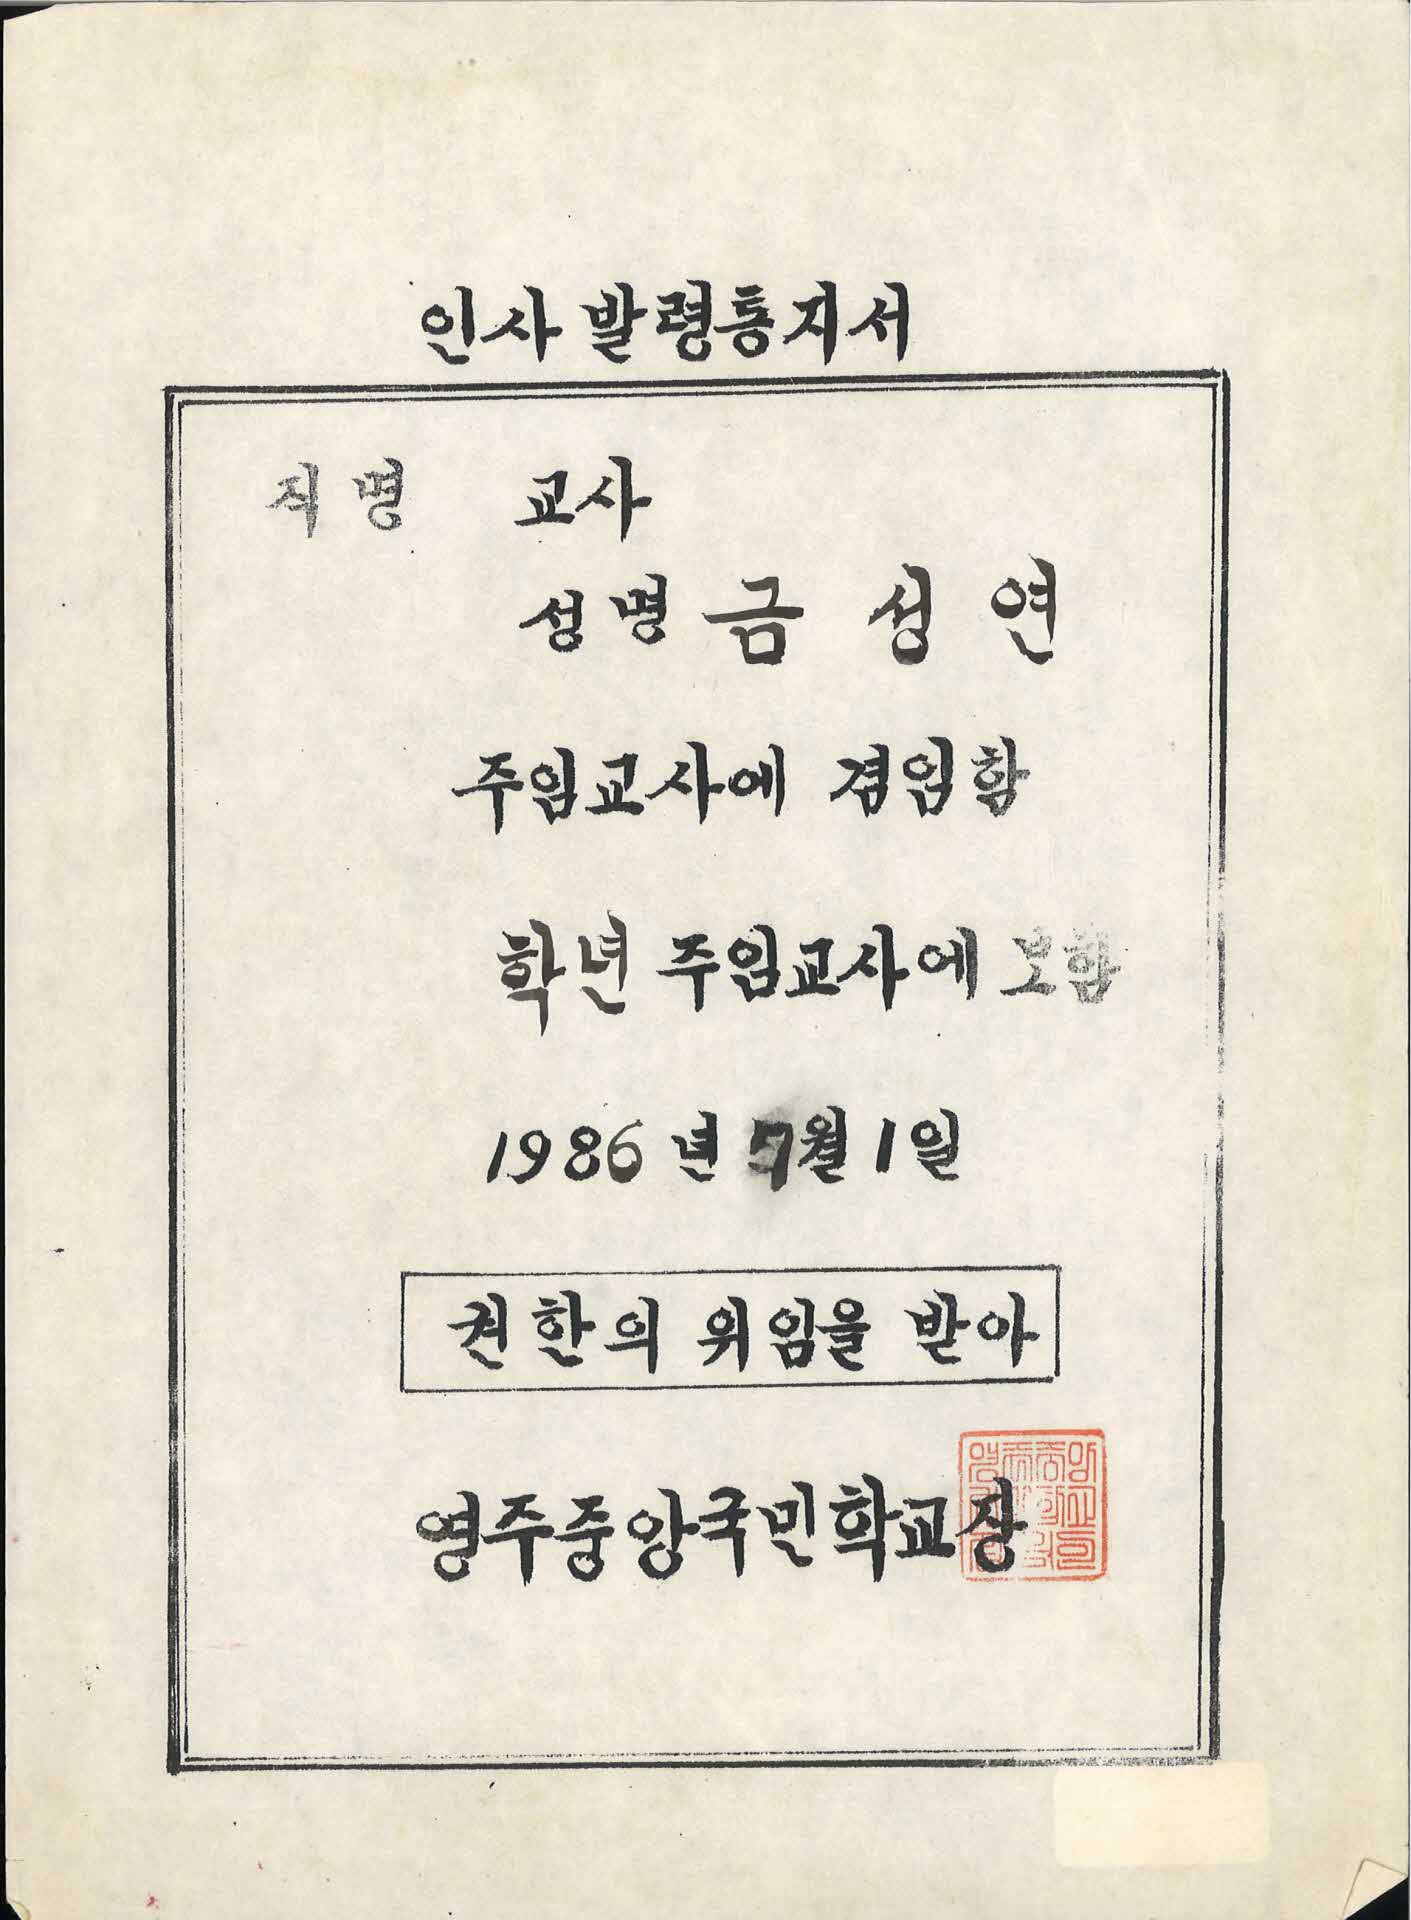 인사 발령통지서
직명 교사
성명 금 성 연
주임교사에 겸임함
학년 주임교사에 보함
1986 년 7월 1일
권한의 위임을 받아
영주중앙국민학교장